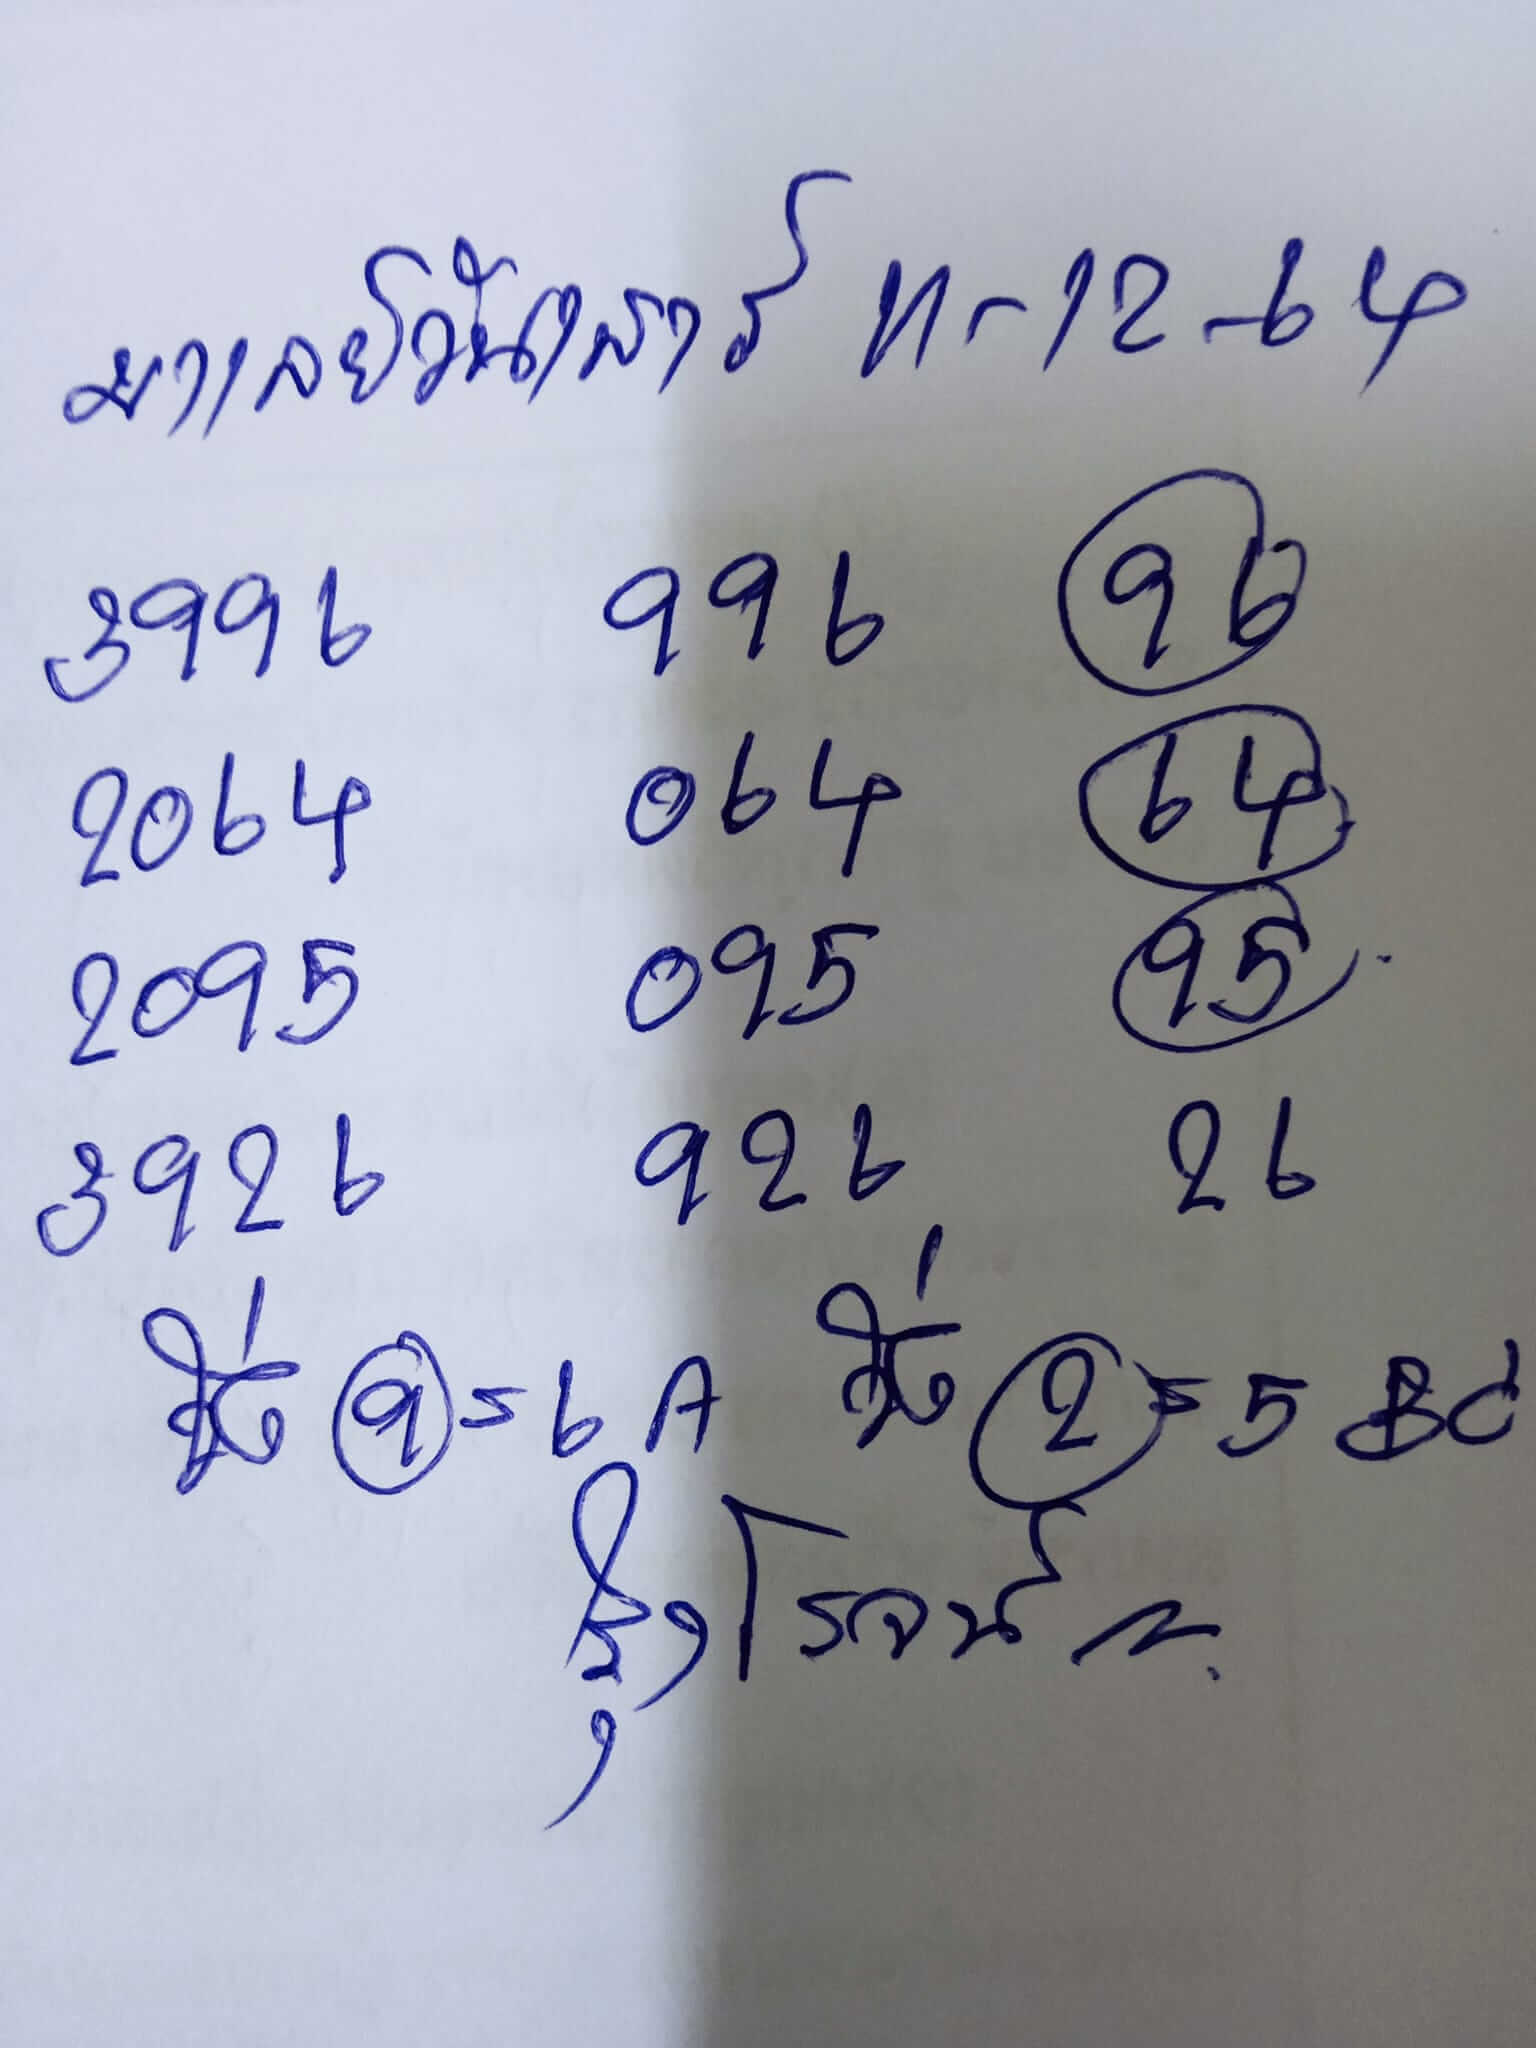 มาเลย์วันเสาร์ 11-12-64
3996 996 96
2064 064 64
2095 095 95
3926 926 26
วิ่ง 9=6 A วิ่ง 2=5 BC
รุ่งโรจน์